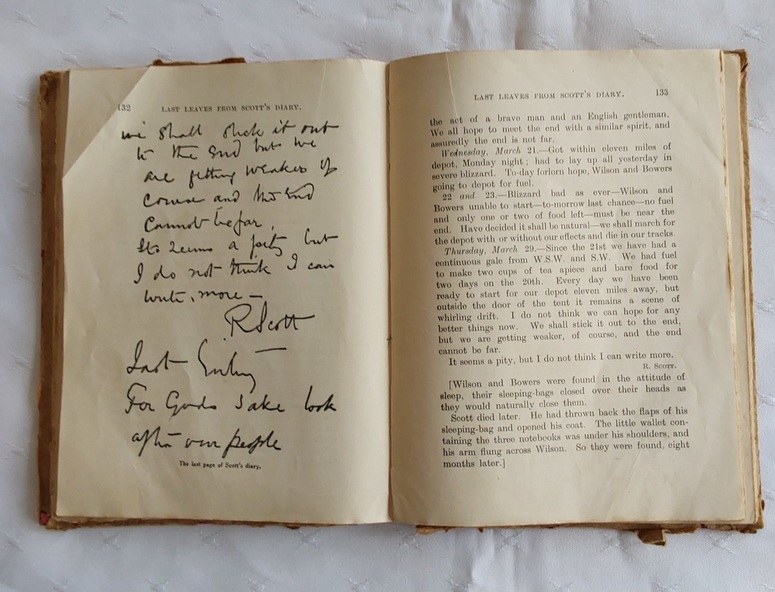 132 LAST LEAVES FROM SCOTT'S DIARY.
we shall stick it out
to the end but we
are getting weaker of
course and the end
cannot be far.
It seems a pity but
I do not think I can
write more –
R Scott
Last Entry
For Gods sake look
after our people
The last page of Scott's diary.
LAST LEAVES FROM SCOTT'S DIARY. 133
the act of a brave man and an English gentleman.
We all hope to meet the end with a similar spirit, and
assuredly the end is not far.
Wednesday, March 21.—Got within eleven miles of
depot, Monday night; had to lay up all yesterday in
severe blizzard. To-day forlorn hope, Wilson and Bowers
going to depot for fuel.
22 and 23.—Blizzard bad as ever—Wilson and
Bowers unable to start—to-morrow last chance—no fuel
and only one or two of food left—must be near the
end. Have decided it shall be natural—we shall march for
the depot with or without our effects and die in our tracks.
Thursday, March 29.—Since the 21st we have had a
continuous gale from W.S.W. and S.W. We had fuel
to make two cups of tea apiece and bare food for
two days on the 20th. Every day we have been
ready to start for our depot eleven miles away, but
outside the door of the tent it remains a scene of
whirling drift. I do not think we can hope for any
better things now. We shall stick it out to the end,
but we are getting weaker, of course, and the end
cannot be far.
It seems a pity, but I do not think I can write more.
R. SCOTT.
[Wilson and Bowers were found in the attitude of
sleep, their sleeping-bags closed over their heads as
they would naturally close them.
Scott died later. He had thrown back the flaps of his
sleeping-bag and opened his coat. The little wallet con-
taining the three notebooks was under his shoulders, and
his arm flung across Wilson. So they were found, eight
months later.]